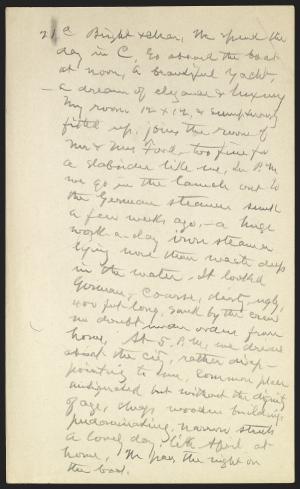 21 C Bright & clear, We spend the
day in C. Go aboard the boat
at noon, A beautiful Yacht,
– a dream of elegance & luxury
My room 12 x 12, & sumptuously
fitted up, joins the room of
Mr & Mrs Ford – too fine for
a Slabsider like me, In P.M.
we go in the launch out to
the German steamer sunk
a few weeks ago, – a huge
work-a-day iron steamer
lying more than waist deep
in the water – It looked
German, – coarse, dirty, ugly,
400 feet long. Sunk by the crew
no doubt under orders from
home, At 5 P.M. we drive
about the city, rather disap-
pointing to me, common place
antiquated but without the dignity
of age, cheap wooden buildings
predominating, narrow streets
A lovely day like April at
home, We pass the night on
the boat.